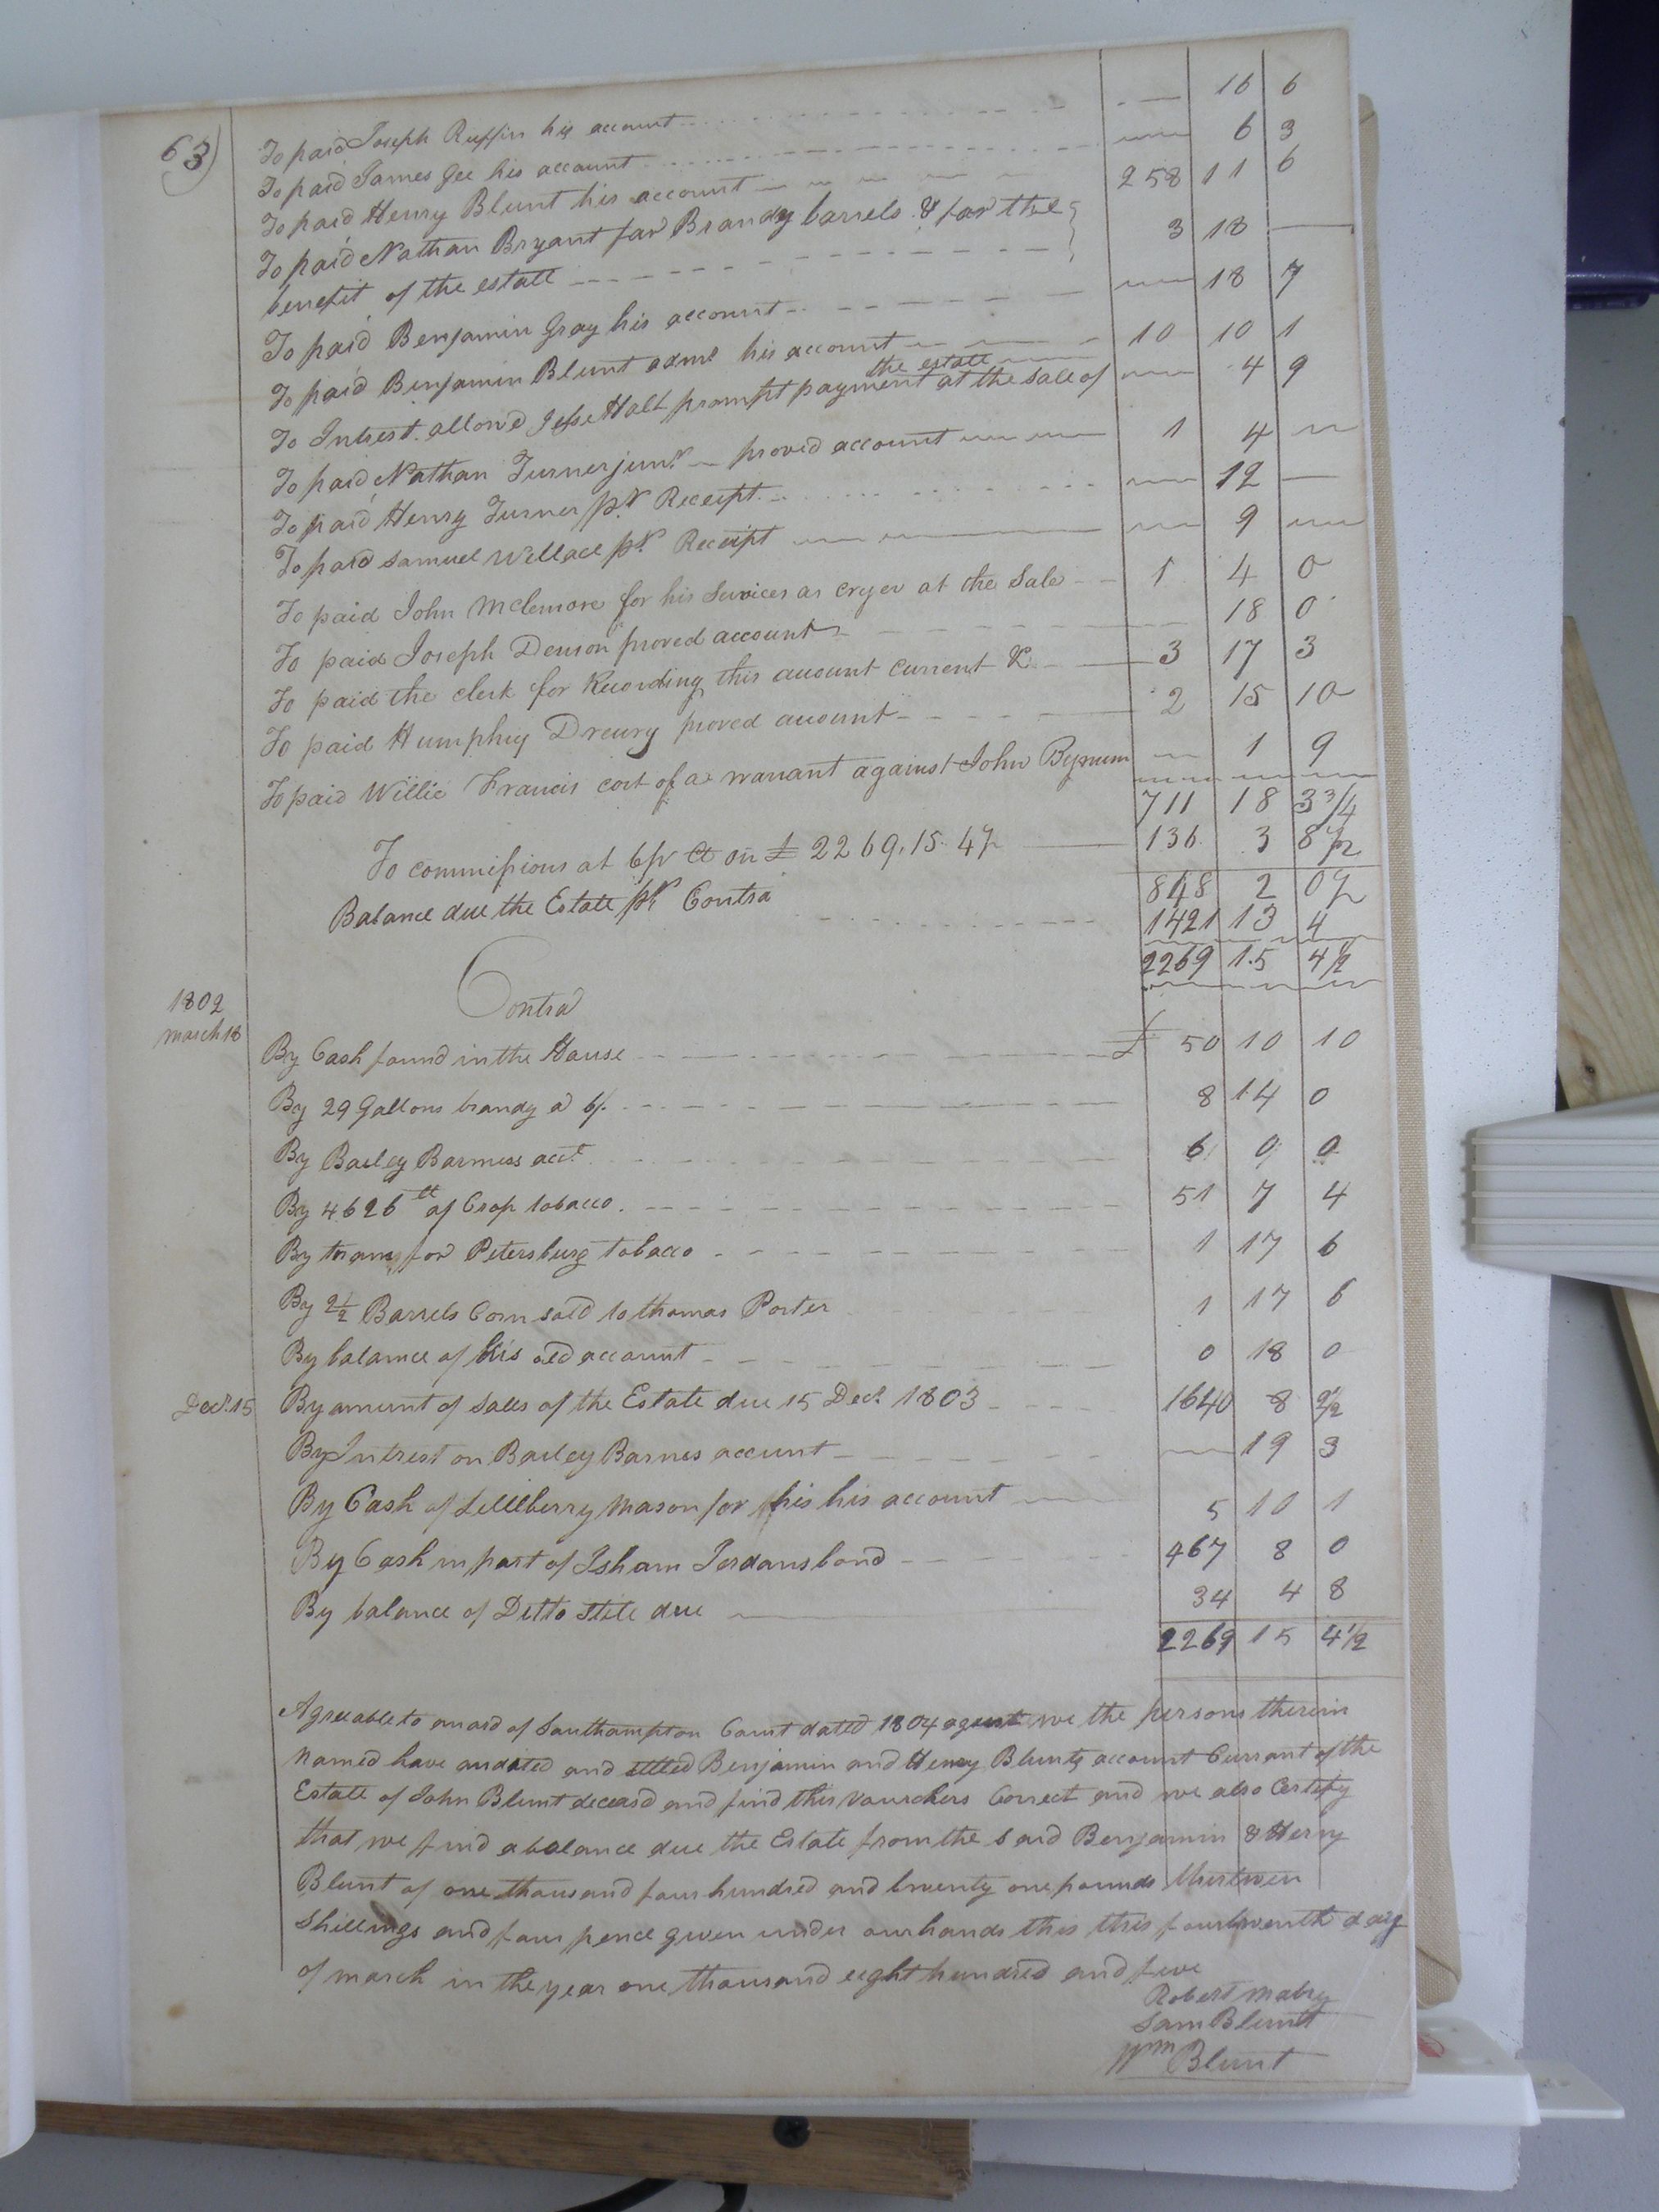 63)
To paid Joseph Ruffin his account 16 6
To paid James Gee his account 6 3
To paid Henry Blunt his account 258 11 6
To paid Nathan Bryant for Brandy barrels & for the
benefit of the estate 3 18
To paid Benjamin Gray his account 18 7
To paid Benjamin Blunt admr his account 10 10 1
the estate
To Intrest allowd Jesse Hall prompt payment at the sale of 4 9
To paid Nathan Turner junr proved account 1 4
To paid Henry Turner pr Receipt 12
To paid Samuel Wallace pr Receipt 9
To paid John Mclemore for his Services as cryer at the Sale 1 4 0
To paid Joseph Denson proved account 18 0
To paid the clerk for Recording this account current &c 3 17 3
To paid Humphry Drewry proved account 2 15 10
To paid Willie Francis cost of a warrant against John Bynum 1 9
711 18 3 3/4
To commissions at 6 pr Ct on £ 2269.15.4½ 136 3 8½
848 2 0½
Balance due the Estate pr Contra 1421 13 4
2269 15 4½
Contra
1802
march 18
By Cash found in the House £ 50 10 10
By 29 Gallons brandy a 6/. 8 14 0
By Bailey Barness acct 6 0 0
By 4626 lt of Crop tobacco 51 7 4
By for Petersburg tobacco 1 17 6
By 2½ Barrels Corn sold to thomas Porter 1 17 6
By balance of his old account 0 18 0
Decr. 15 By amount of Sales of the Estate due 15 Decr. 1803 1640 8 2½
By Intrest on Bailey Barnes account 19 3
By Cash of Littleberry Mason for his his account 5 10 1
By Cash in part of Isham Jordans bond 467 8 0
By balance of Ditto Still due 34 4 8
2269 15 4½
Agreeable to an ord of Southampton Court dated 1804 august we the persons therein
Named have audited and settled Benjamin and Henry Blunts account Currant of the
Estate of John Blunt deceasd and find this Vouchers Correct and we also Certify
that we find a balance due the Estate from the said Benjamin & Henry
Blunt of one thousand four hundred and twenty one pounds thirteen
Shillings and four pence given under our hands this this fourteenth day
of march in the year one thousand eight hundred and five
Robert Mabry
Sam Blunt
Wm Blunt